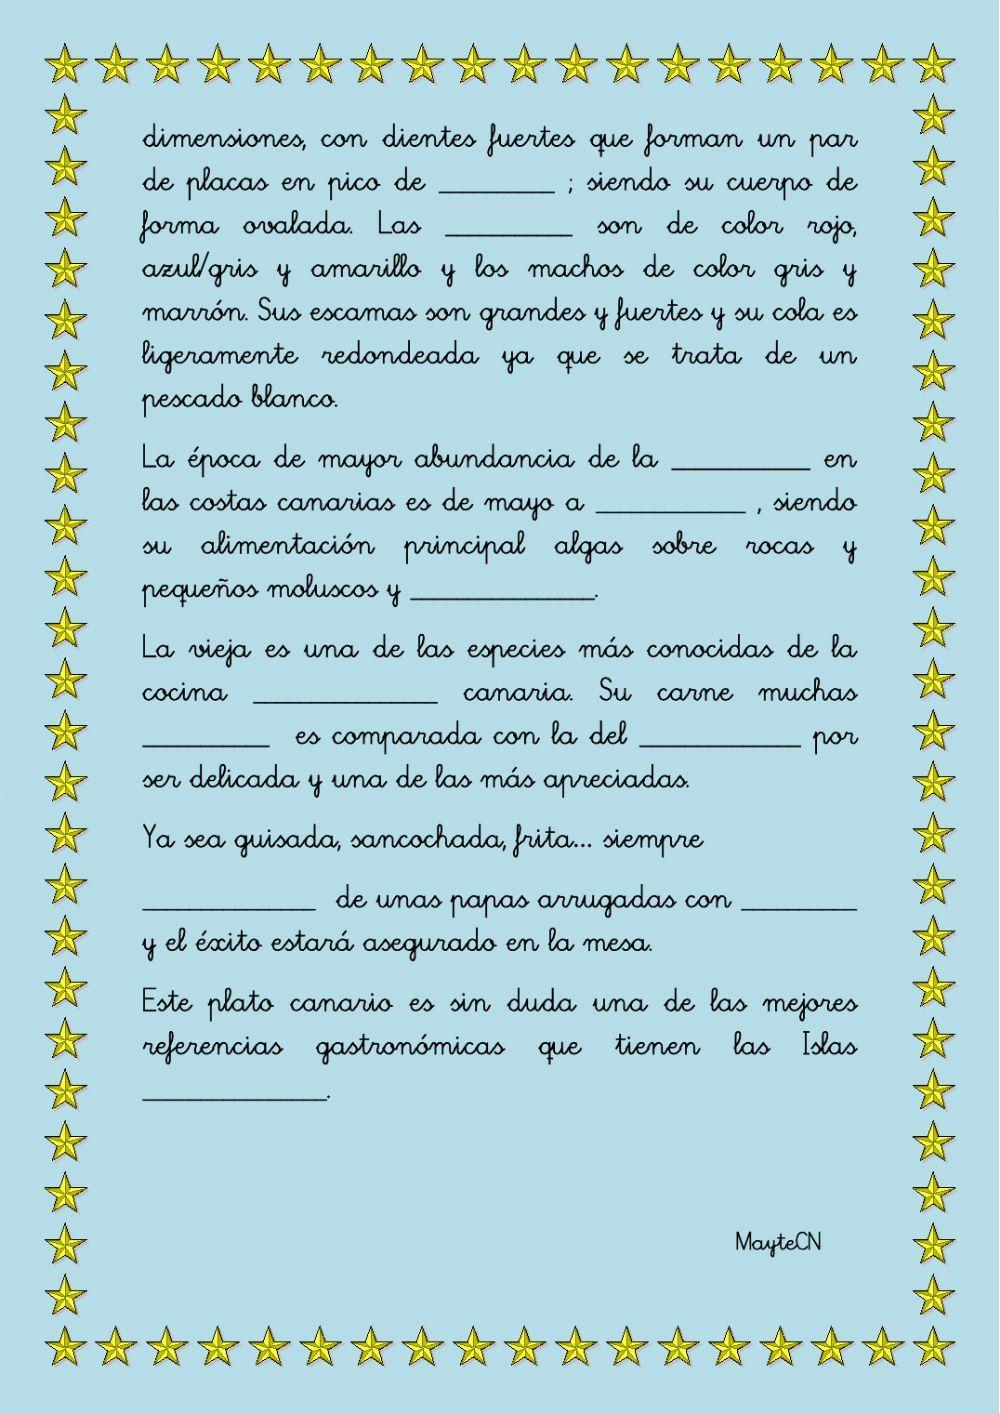 dimensiones, con dientes fuertes que forman un par
de placas en pico de __________ ; siendo su cuerpo de
forma ovalada. Las ___________ son de color rojo,
azul/gris y amarillo y los machos de color gris y
marrón. Sus escamas son grandes y fuertes y su cola es
ligeramente redondeada ya que se trata de un
pescado blanco.
La época de mayor abundancia de la ____________ en
las costas canarias es de mayo a _____________ , siendo
su alimentación principal algas sobre rocas y
pequeños moluscos y ________________.
La vieja es una de las especies más conocidas de la
cocina ________________ canaria. Su carne muchas
___________ es comparada con la del ______________ por
ser delicada y una de las más apreciadas.
Ya sea guisada, sancochada, frita... siempre
_______________ de unas papas arrugadas con __________
y el éxito estará asegurado en la mesa.
Este plato canario es sin duda una de las mejores
referencias gastronómicas que tienen las Islas
________________.
MayteCN